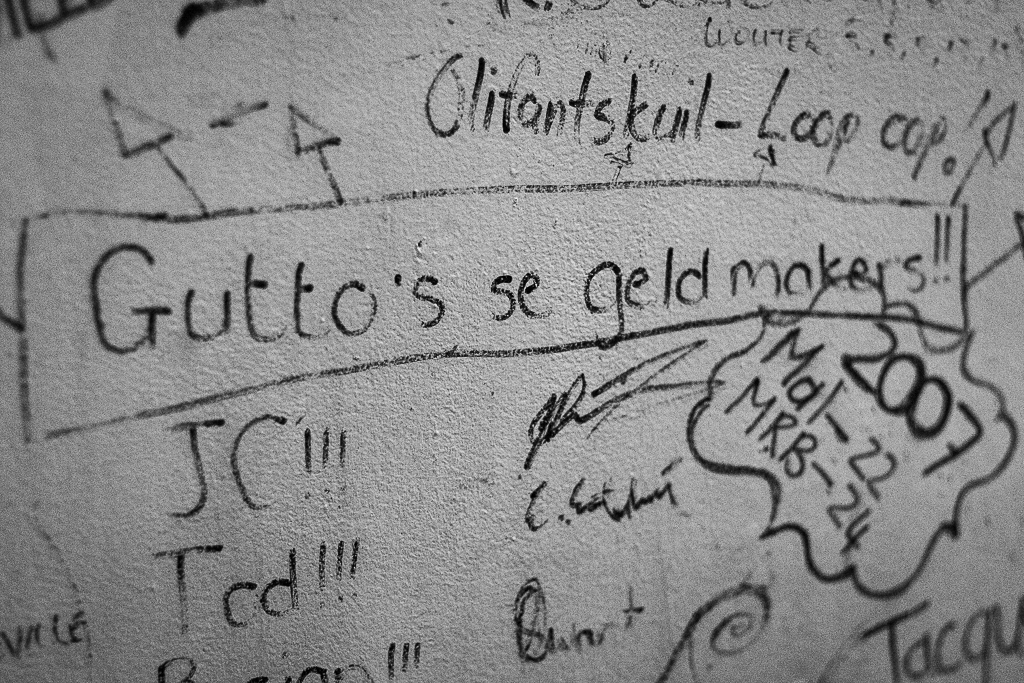 WOUTER
Olifantskuil - Loop cop!
Gutto's se geld makers!!
2007
Mal-22
MRB-24
JC!!!
Tcd!!!
VILLE
Jacqu